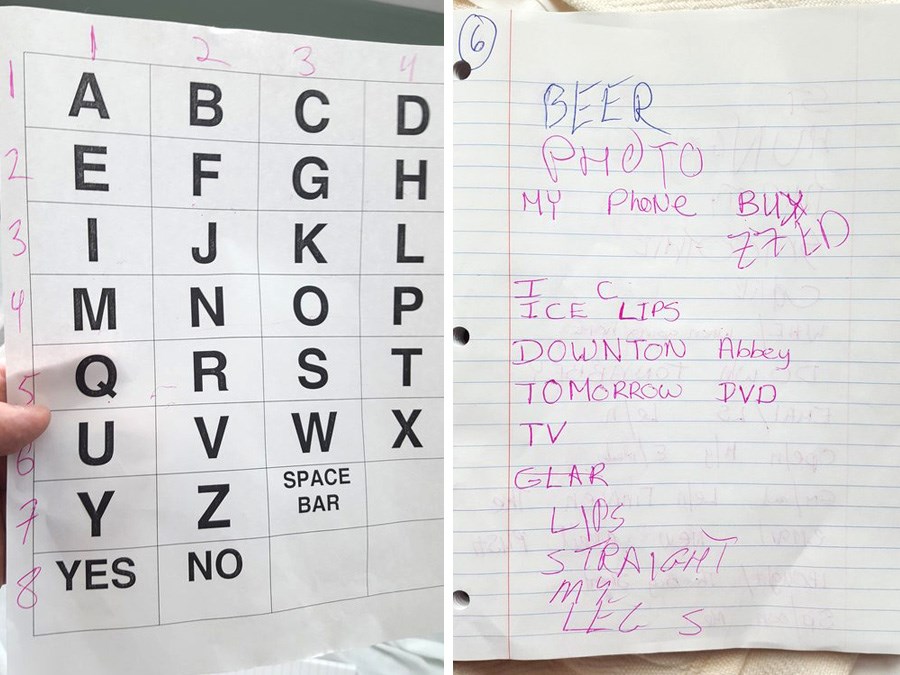 1 2 3 4
1 A B C D
2 E F G H
3 I J K L
4 M N O P
5 Q R S T
6 U V W X
7 Y Z SPACE BAR
8 YES NO
6
BEER
PHOTO
MY PhoNe BUX
ZZED
I C
ICE LIPS
DOWNTON Abbey
TOMORROW DVD
TV
GLAR
LIPS
STRAIGHT
MY
LEG S